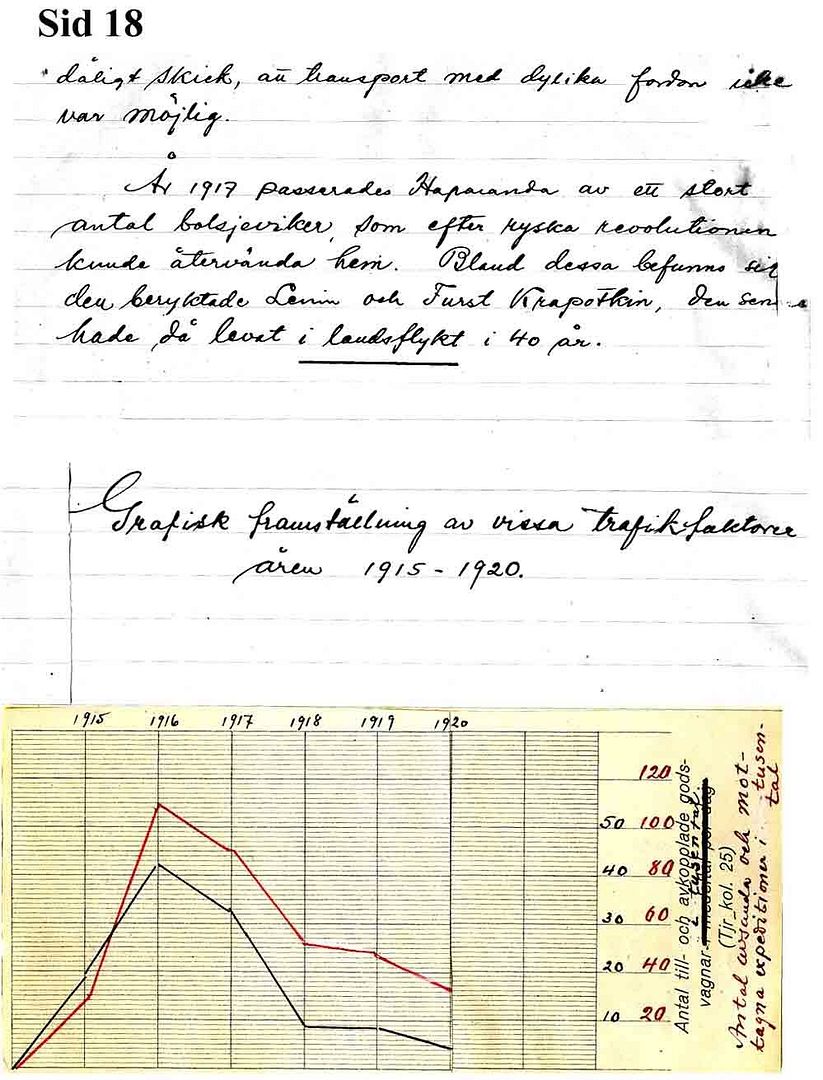 Sid 18
dåligt skick, att transport med dylika fordon icke
var möjlig.
År 1917 passerades Haparanda av ett stort
antal bolsjeviker, som efter ryska revolutionen
kunde återvända hem. Bland dessa befunno sig
den beryktade Lenin och Furst Krapotkin, den
hade då levat i landsflykt i 40 år.
Grafisk framställning av vissa trafikfaktorer
åren 1915 - 1920.
1915 1916 1917 1918 1919 1920
120
50 100
40 80
30 60
20 40
10 20
Antal till- och avkopplade gods-
vagnar i tusental.
(Tjr kol. 25)
Antal avsända och mot-
tagna expeditioner i tusen-
tal